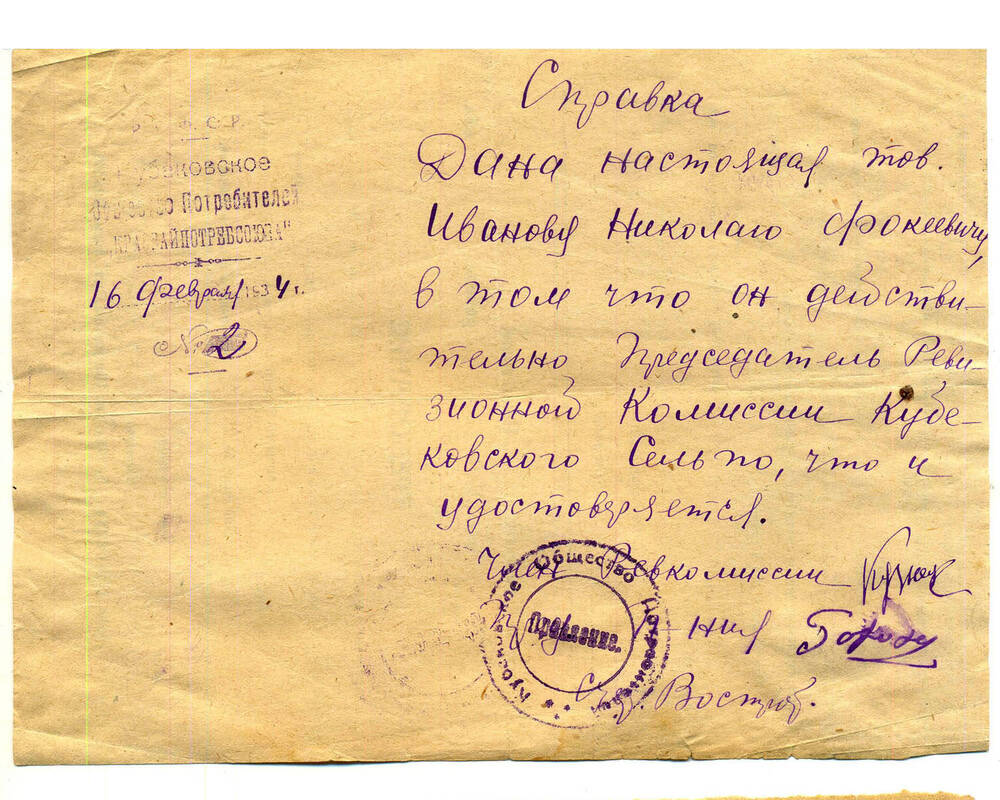 С. Р.
Кубековское
Общество Потребителей
"КРАСРАЙПОТРЕБСОЮЗА"
16 февраля 1934 г.
№ 2
Справка
Дана настоящая тов.
Иванову Николаю Фокеевичу,
в том что он действи-
тельно Председатель Реви-
зионной Комиссии Кубе-
ковского Сельпо, что и
удостоверяется.
Член Ревкомиссии
ния
Востров.
Кубековское Общество Потребителей
Правление.